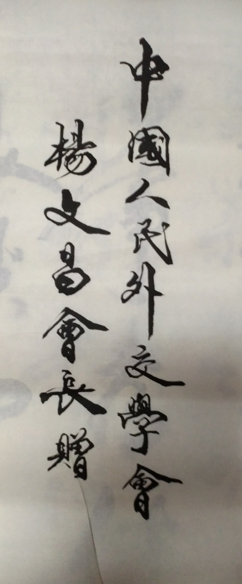 中國人民外交學會
楊文昌會長贈